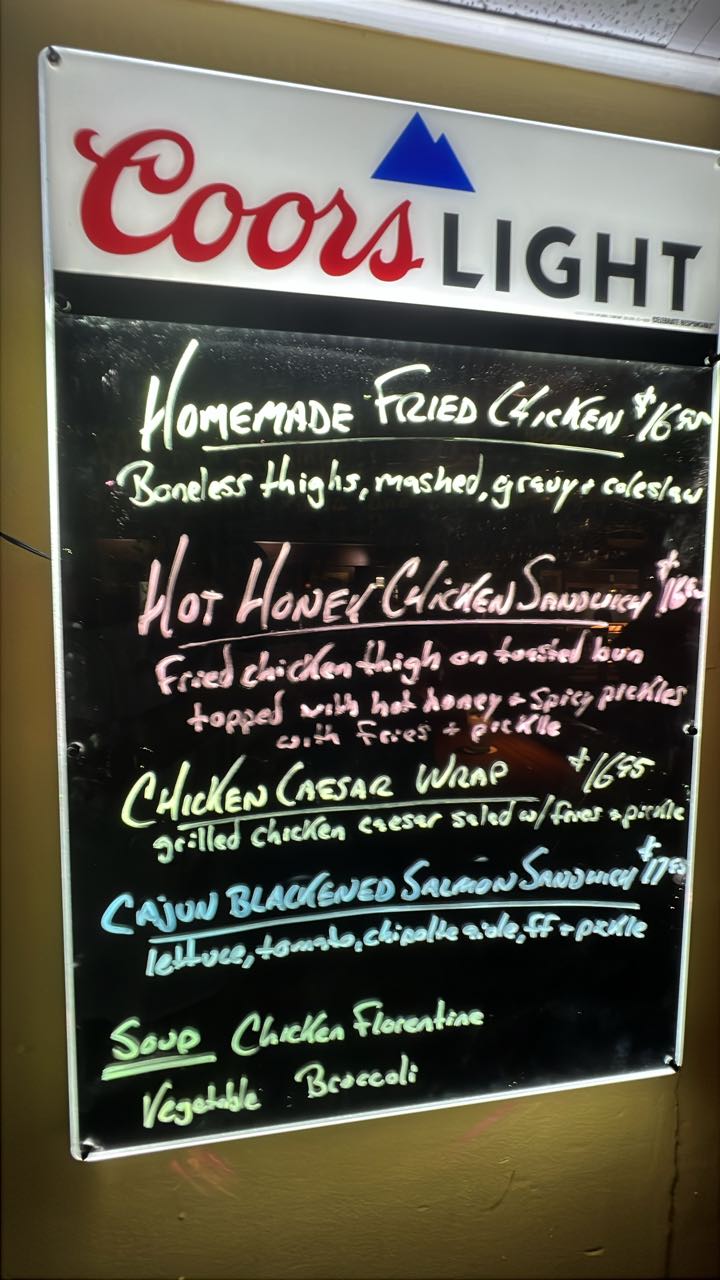 Coors LIGHT
CELEBRATE RESPONSIBLY
HOMEMADE FRIED CHICKEN $16.95
Boneless thighs, mashed, gravy + coleslaw
HOT HONEY CHICKEN SANDWICH
Fried chicken thigh on toasted bun
topped with hot honey + spicy pickles
with fries + pickle
CHICKEN CAESAR WRAP $16.95
grilled chicken caesar salad w/ fries + pickle
CAJUN BLACKENED SALMON SANDWICH $17.95
lettuce, tomato, chipotle aiole, ff + pickle
Soup Chicken Florentine
Vegetable Broccoli